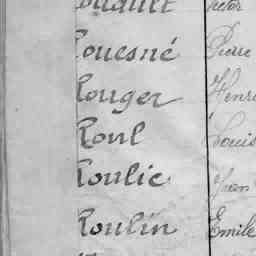 Rouesné Pierre
Rouger Henri
Roul Louis
Roulic Jean
Roulin Emile